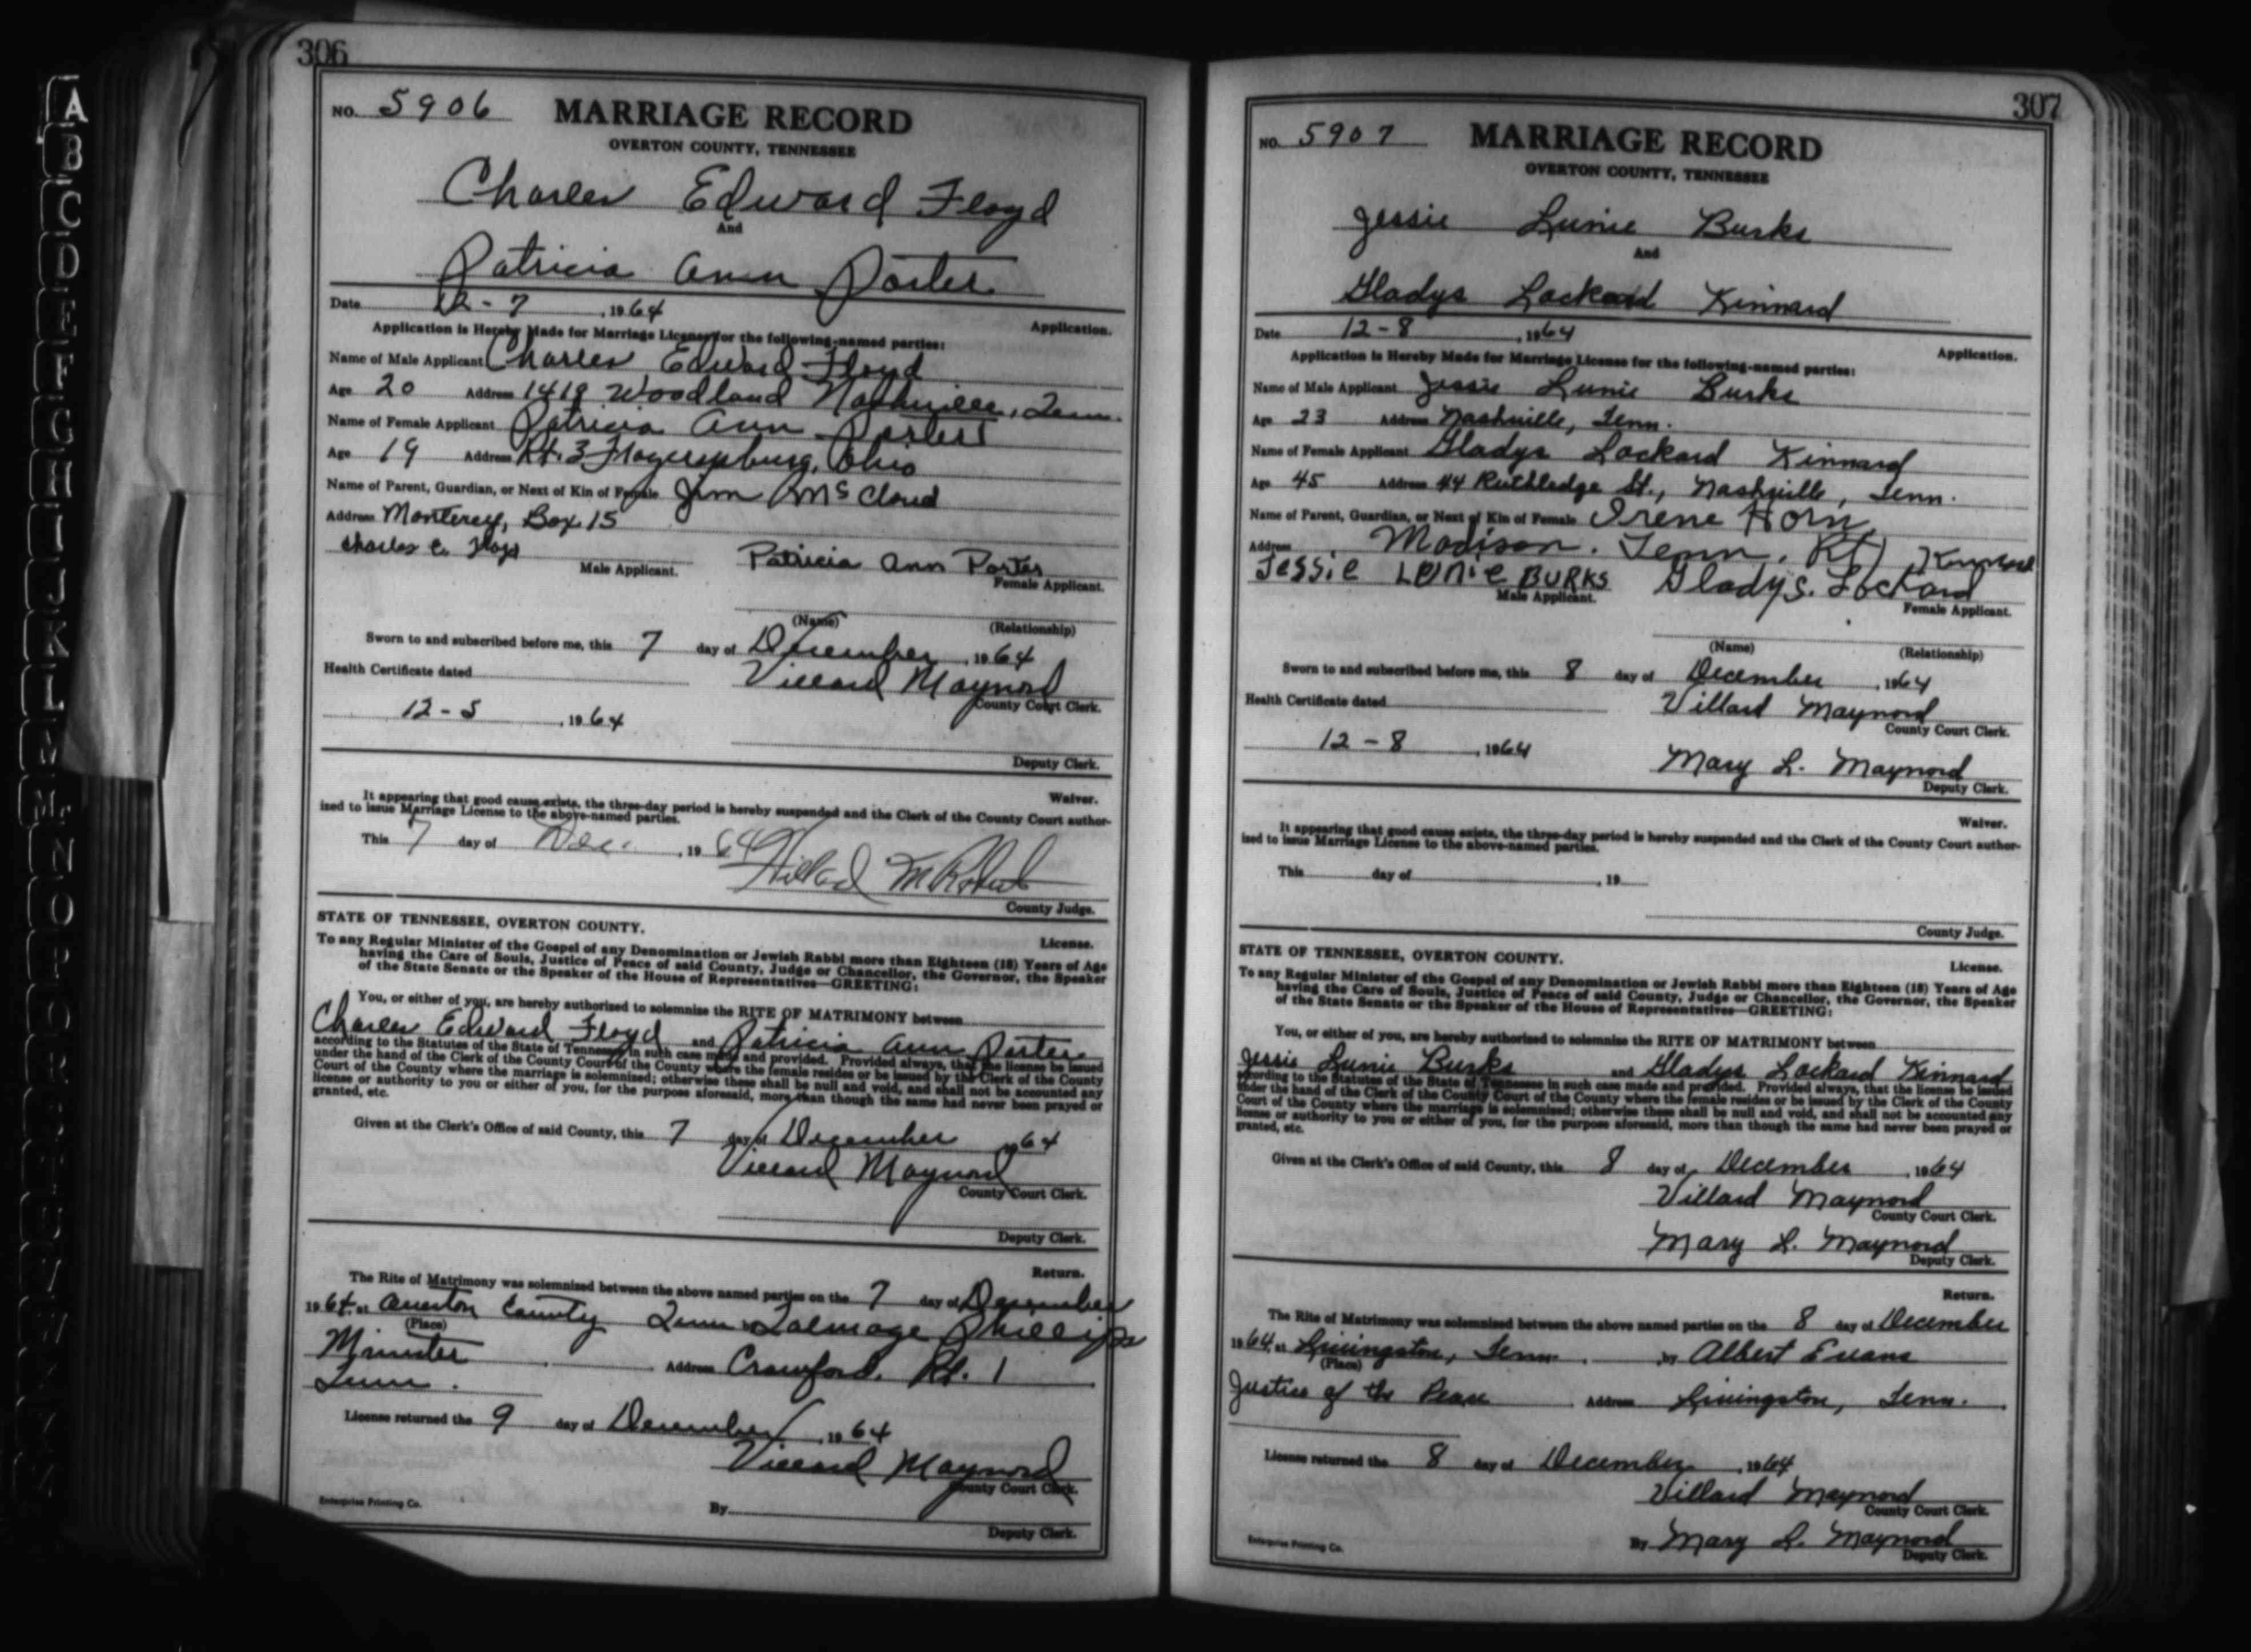 306
NO. 5906 MARRIAGE RECORD
OVERTON COUNTY, TENNESSEE
Charles Edward Floyd
And
Patricia Ann Porter
Date 12-7, 1964
Application.
Application is Hereby Made for Marriage License for the following-named parties:
Name of Male Applicant Charles Edward Floyd
Age 20 Address 1418 Woodland Nashville, Tenn.
Name of Female Applicant Patricia Ann Porter
Age 19 Address Rt. 3 Ohio
Name of Parent, Guardian, or Next of Kin of Female Jim McCloud
Address Monterey, Box 15
Charles E. Floyd Patricia Ann Porter
Male Applicant. Female Applicant.
(Name) (Relationship)
Sworn to and subscribed before me, this 7 day of December, 1964
Health Certificate dated Villard Maynord
County Court Clerk.
12-5, 1964
Deputy Clerk.
Waiver.
It appearing that good cause exists, the three-day period is hereby suspended and the Clerk of the County Court author-
ized to issue Marriage License to the above-named parties.
This 7 day of Dec., 1964
County Judge.
STATE OF TENNESSEE, OVERTON COUNTY.
License.
To any Regular Minister of the Gospel of any Denomination or Jewish Rabbi more than Eighteen (18) Years of Age
having the Care of Souls, Justice of Peace of said County, Judge or Chancellor, the Governor, the Speaker
of the State Senate or the Speaker of the House of Representatives—GREETING:
You, or either of you, are hereby authorized to solemnize the RITE OF MATRIMONY between
Charles Edward Floyd and Patricia Ann Porter
according to the Statutes of the State of Tennessee in such case made and provided. Provided always, that the license be issued
under the hand of the Clerk of the County Court of the County where the female resides or be issued by the Clerk of the County
Court of the County where the marriage is solemnized; otherwise these shall be null and void, and shall not be accounted any
license or authority to you or either of you, for the purpose aforesaid, more than though the same had never been prayed or
granted, etc.
Given at the Clerk's Office of said County, this 7 day of December 1964
Villard Maynord
County Court Clerk.
Deputy Clerk.
Return.
The Rite of Matrimony was solemnized between the above named parties on the 7 day of December
1964 at Overton County Tenn by Talmage Phillips
(Place)
Minister Address Crawford, Rt. 1
Tenn.
License returned the 9 day of December, 1964
Villard Maynord
County Court Clerk.
Enterprise Printing Co.
By
Deputy Clerk.
307
NO. 5907 MARRIAGE RECORD
OVERTON COUNTY, TENNESSEE
Jessie Lunie Burks
And
Gladys Lockard Kinnard
Date 12-8, 1964
Application.
Application is Hereby Made for Marriage License for the following-named parties:
Name of Male Applicant Jessie Lunie Burks
Age 23 Address Nashville, Tenn.
Name of Female Applicant Gladys Lockard Kinnard
Age 45 Address 44 Ruthledge St., Nashville, Tenn.
Name of Parent, Guardian, or Next of Kin of Female Irene Horn
Address Madison. Tenn. Rt 1
Jessie Lonie BURKS Gladys. Lockard Kinnard
Male Applicant. Female Applicant.
(Name) (Relationship)
Sworn to and subscribed before me, this 8 day of December, 1964
Health Certificate dated Villard Maynord
County Court Clerk.
12-8, 1964
Mary L. Maynord
Deputy Clerk.
Waiver.
It appearing that good cause exists, the three-day period is hereby suspended and the Clerk of the County Court author-
ized to issue Marriage License to the above-named parties.
This day of, 19
County Judge.
STATE OF TENNESSEE, OVERTON COUNTY.
License.
To any Regular Minister of the Gospel of any Denomination or Jewish Rabbi more than Eighteen (18) Years of Age
having the Care of Souls, Justice of Peace of said County, Judge or Chancellor, the Governor, the Speaker
of the State Senate or the Speaker of the House of Representatives—GREETING:
You, or either of you, are hereby authorized to solemnize the RITE OF MATRIMONY between
Jessie Lunie Burks and Gladys Lockard Kinnard
according to the Statutes of the State of Tennessee in such case made and provided. Provided always, that the license be issued
under the hand of the Clerk of the County Court of the County where the female resides or be issued by the Clerk of the County
Court of the County where the marriage is solemnized; otherwise these shall be null and void, and shall not be accounted any
license or authority to you or either of you, for the purpose aforesaid, more than though the same had never been prayed or
granted, etc.
Given at the Clerk's Office of said County, this 8 day of December, 1964
Villard Maynord
County Court Clerk.
Mary L. Maynord
Deputy Clerk.
Return.
The Rite of Matrimony was solemnized between the above named parties on the 8 day of December
1964, at Livingston, Tenn. by Albert Evans
(Place)
Justice of the Peace Address Livingston, Tenn.
License returned the 8 day of December, 1964
Villard Maynord
County Court Clerk.
Enterprise Printing Co.
By Mary L. Maynord
Deputy Clerk.